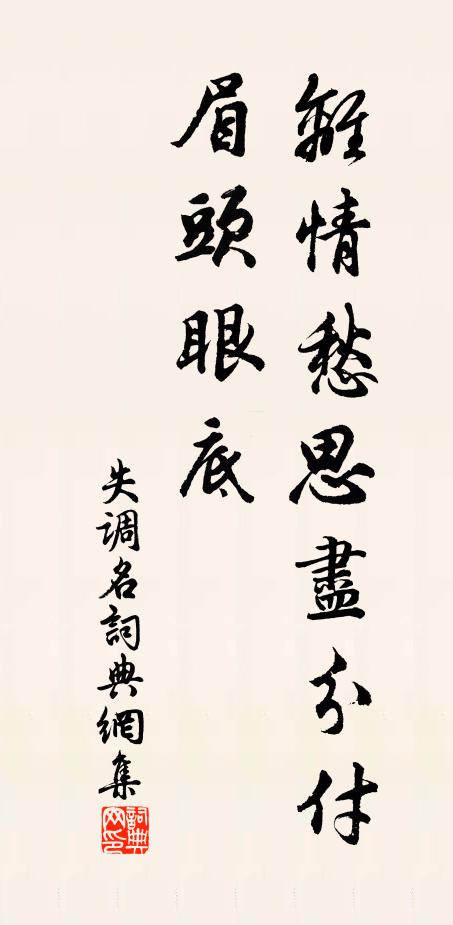 離情愁思盡分付
眉頭眼底
失調名詞典網集
詞典網印